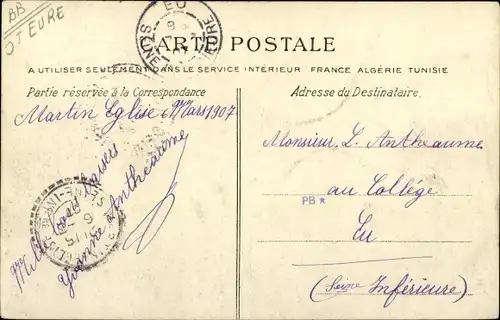 BB
OT EURE
EU
CARTE POSTALE
A UTILISER SEULEMENT DANS LE SERVICE INTÉRIEUR FRANCE ALGÉRIE TUNISIE
Partie réservée à la Correspondance
Adresse du Destinataire.
Martin Eglise 6 Mars 1907
Mille bons baisers
Yvonne Antheaume
Monsieur L. Antheaume
au Collège
PB*
Eu
(Seine Inférieure)